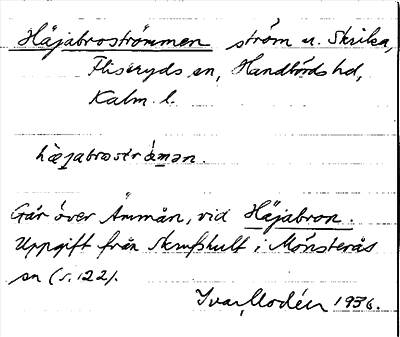 Häjabroströmmen ström u. Skrika,
Fliseryds sn, Handbörds hd,
Kalm. l.
hæjabroströmən.
Går över Ämmån, vid Häjabron.
Uppgift från Skrufshult i Mönsterås
sn (s. 122).
Ivar Modéer 1936.